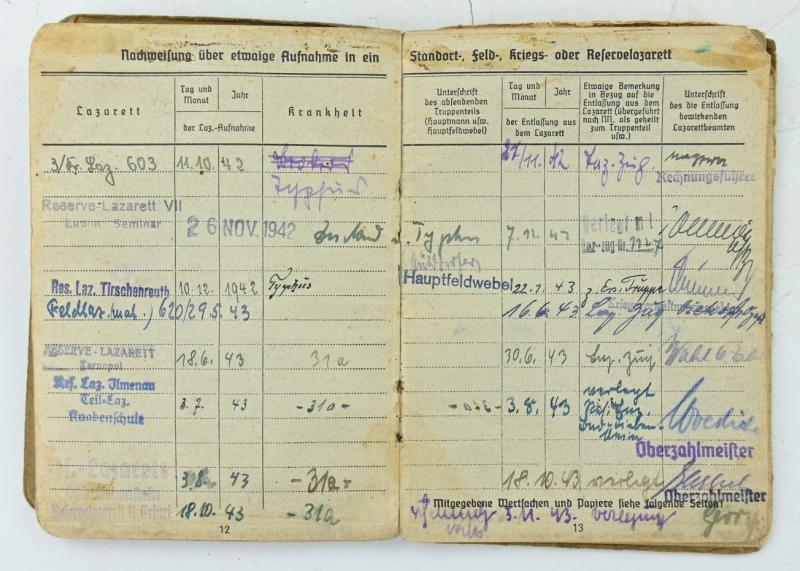 Nachweisung über etwaige Aufnahme in ein
Lazarett
Tag und Monat
Jahr
der Laz.-Aufnahme
Krankheit
3/Kr. Laz. 603 11.10. 42
Typhus
Reserve-Lazarett VII
Lublin Seminar
26 NOV. 1942
Zustand n. Typhus
Res. Laz. Tirschenreuth 10.12. 1942 Typhus
Feldlaz. (mot.) 620/29.5. 43
RESERVE-LAZARETT
Tarnopol
18.6. 43 31a
Res. Laz. Ilmenau
Teil-Laz.
Knabenschule
3.7. 43 -31a-
Lazarett
3.8. 43 -31a-
Reservelazarett II Erfurt
18.10. 43 -31a
12
Standort-, Feld-, Kriegs- oder Reservelazarett
Unterschrift des absendenden Truppenteils (Hauptmann usw. Hauptfeldwebel)
Tag und Monat
Jahr
der Entlassung aus dem Lazarett
Etwaige Bemerkung in Bezug auf die Entlassung aus dem Lazarett (übergeführt nach NN. als geheilt zum Truppenteil usw.)
Unterschrift des die Entlassung bewirkenden Lazarettbeamten
27/11. 42 Laz. Zug.
Rechnungsführer
7.12. 42 Verlegt m.
Laz-zug Nr.
Hauptfeldwebel 22.1. 43 z. Ers. Truppe
16.6. 43. Laz. Zug
30.6. 43 Laz. Zug
3.8. 43 verlegt
Res. Laz.
Oberzahlmeister
18.10.43 verlegt
Oberzahlmeister
Mitgegebene Wertsachen und Papiere siehe folgende Seiten!
3.11.43. Verlegung
13